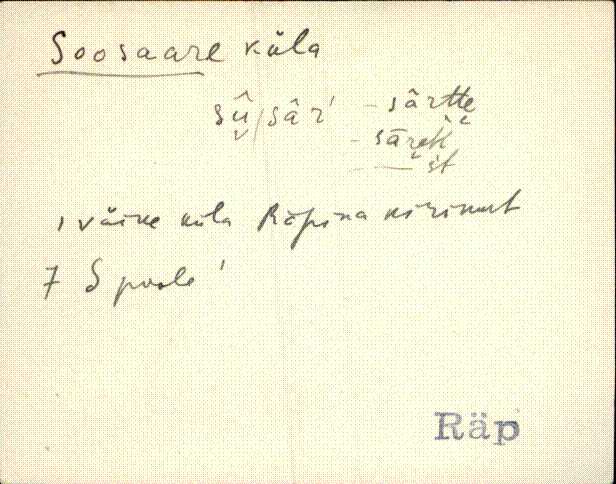 Soosaare küla
sū̬̂|sâŕ - sârtte̮
- sāŕek
- šť
, väike küla Räpina kirikust
7 S poole '
Räp